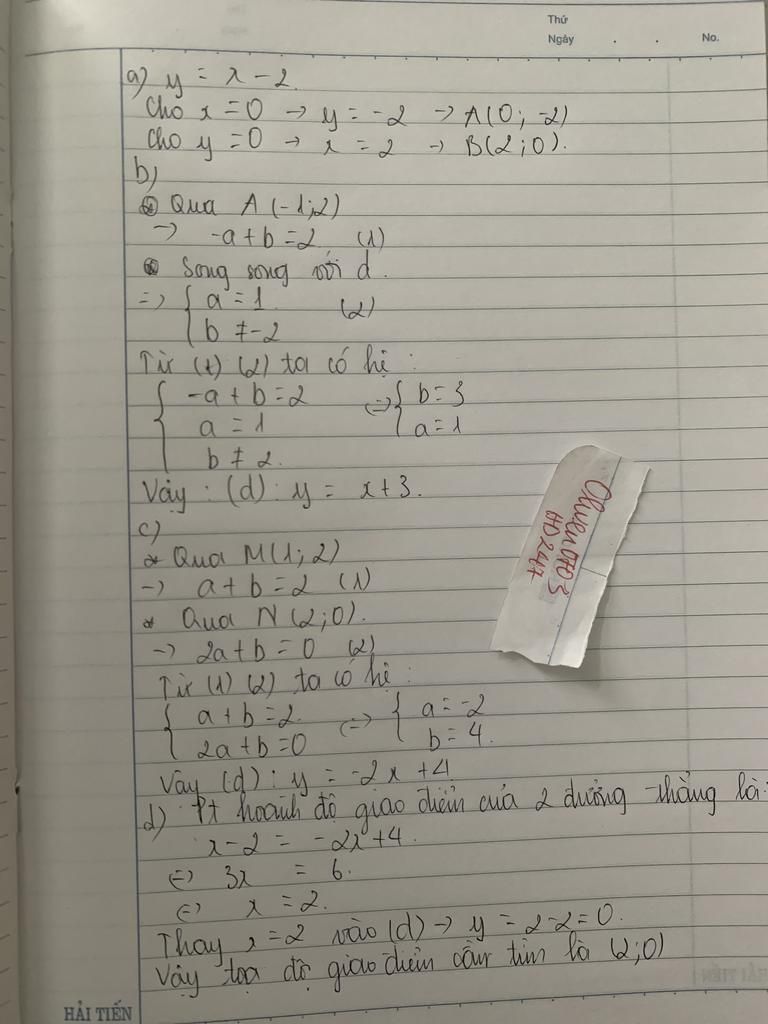 Thứ
Ngày . . No.
a) y = x - 2
Cho x = 0 → y = -2 → A(0; -2)
Cho y = 0 → x = 2 → B(2;0).
b)
Qua A (-1;2)
→ -a + b = 2 (1)
Song song với d.
=> { a = 1 (2)
b ≠ -2
Từ (1) (2) ta có hệ :
{ -a + b = 2 <=> { b = 3
a = 1 a = 1
b ≠ 2.
Vậy : (d) : y = x + 3.
c)
* Qua M(1; 2)
→ a + b = 2 (1)
* Qua N (2;0).
→ 2a + b = 0 (2)
Từ (1) (2) ta có hệ :
{ a + b = 2 <=> { a = -2
2a + b = 0 b = 4.
Vậy (d) : y = -2x + 4
d) Pt hoành độ giao điểm của 2 đường thẳng là:
x - 2 = -2x + 4.
<=> 3x = 6.
<=> x = 2.
Thay x = 2 vào (d) → y = 2-2 = 0.
Vậy tọa độ giao điểm cần tìm là (2;0)
HẢI TIẾN
HD247